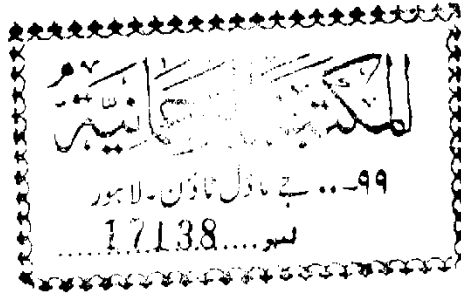 المکتبة الرحمانیة
۹۹-.. جے ماڈل ٹاؤن۔لاہور
نمبر....17138........